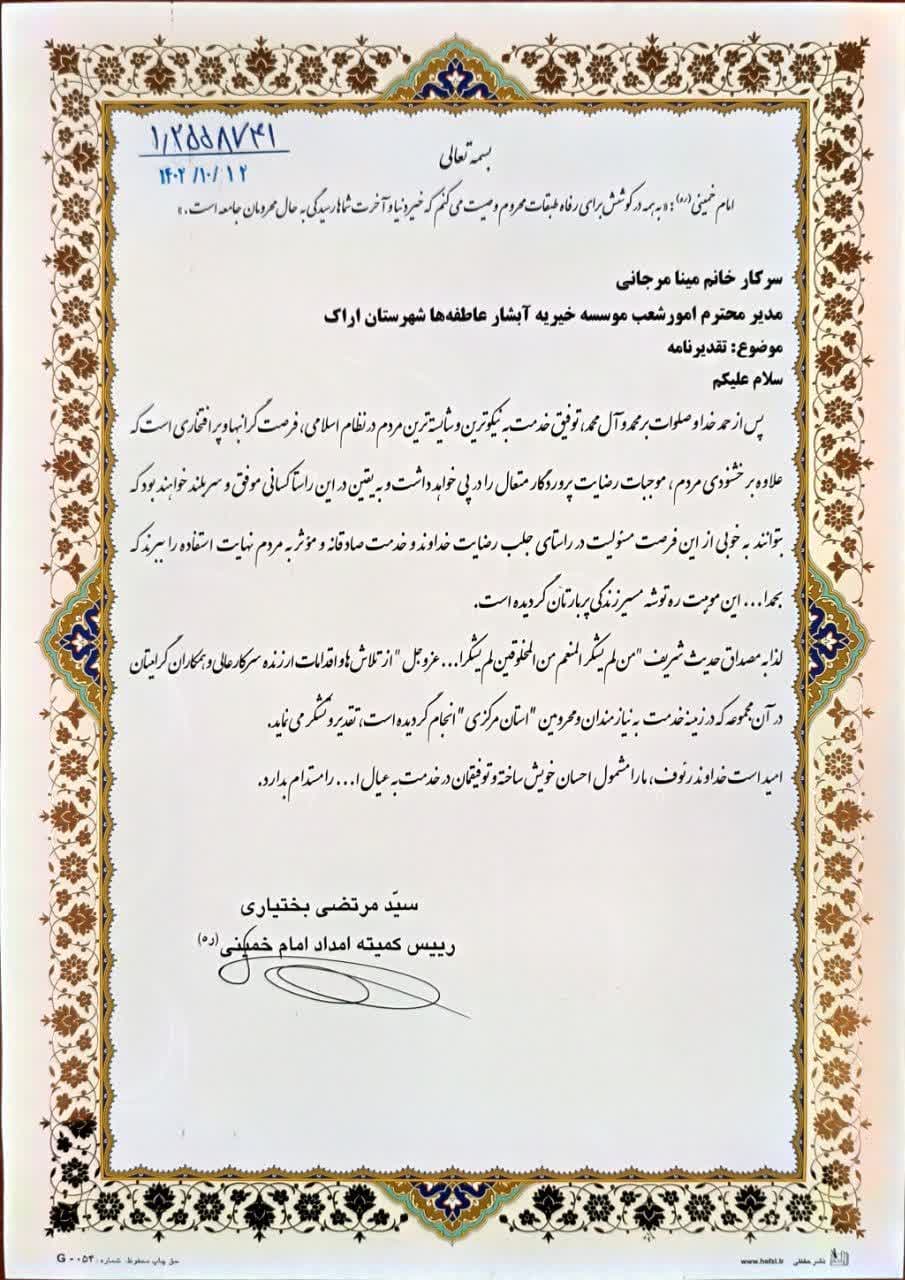 بسمه تعالی
۱٫۲۵۵۸۷۴۱
۱۴۰۲/۱۰/۱۲
امام خمینی(ره): «به همه در کوشش برای رفاه طبقات محروم وصیت می کنم که خیر دنیا و آخرت شما رسیدگی به حال محرومان جامعه است.»
سرکار خانم مینا مرجانی
مدیر محترم امورشعب موسسه خیریه آبشار عاطفه‌ها شهرستان اراک
موضوع: تقدیرنامه
سلام علیکم
پس از حمد خدا و صلوات بر محمد و آل محمد، توفیق خدمت به نیکوترین و شایسته ترین مردم در نظام اسلامی، فرصت گرانبها و پر افتخاری است که
علاوه بر خشنودی مردم، موجبات رضایت پروردگار متعال را در پی خواهد داشت و به یقین در این راستا کسانی موفق و سربلند خواهند بود که
بتوانند به خوبی از این فرصت مسئولیت در راستای جلب رضایت خداوند و خدمت صادقانه و مؤثر به مردم نهایت استفاده را ببرند که
بحمدا... این موهبت ره توشه مسیر زندگی پربارتان گردیده است.
لذا به مصداق حدیث شریف "من لم یشکر المنعم من المخلوقین لم یشکرا... عزوجل" از تلاش ها و اقدامات ارزنده سرکارعالی و همکاران گرامیتان
در آن مجموعه که در زمینه خدمت به نیازمندان و محرومین "استان مرکزی" انجام گردیده است، تقدیر و تشکر می نماید.
امید است خداوند رئوف، ما را مشمول احسان خویش ساخته و توفیقمان در خدمت به عیال ا... را مستدام بدارد.
سیّد مرتضی بختیاری
رییس کمیته امداد امام خمینی(ره)
نشر حفظی www.hefzi.ir
حق چاپ محفوظ. شماره: G - ۰۵۴